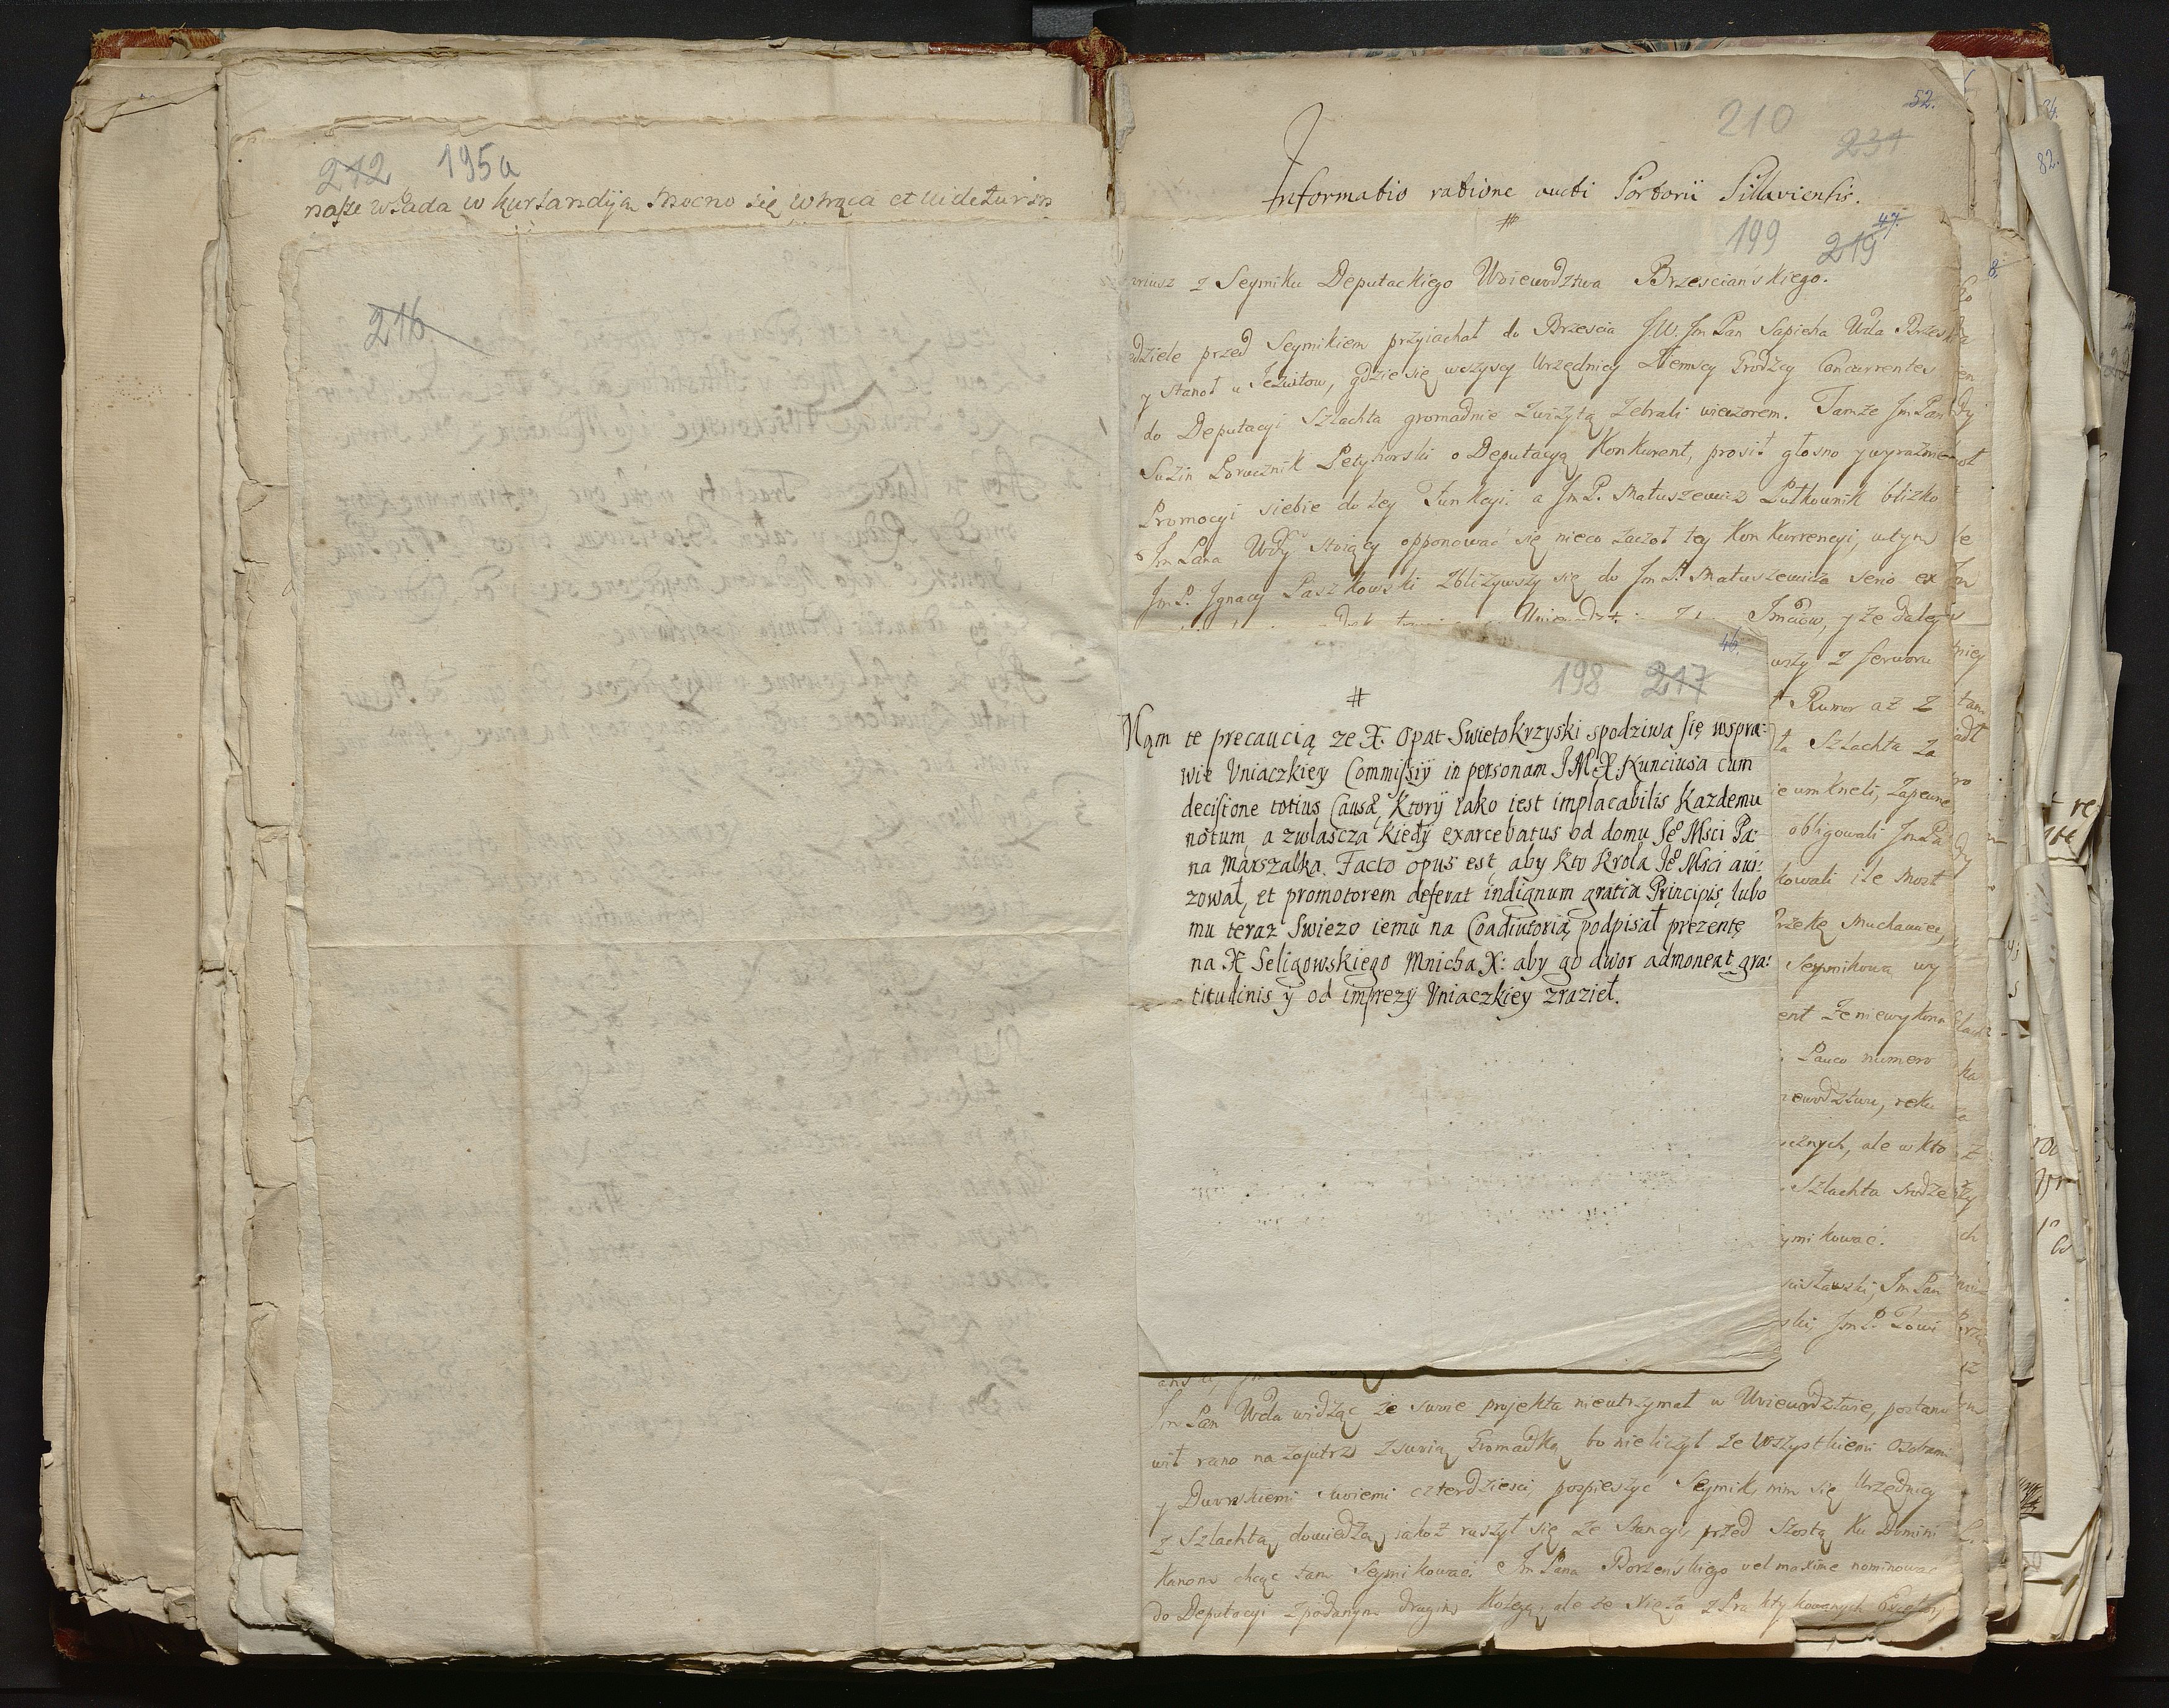 212 195a
nasze wsada w kurlandyą mocno się wtrąca et videtur in
216
52.
210 231
Informatio ratione aucti Portorii Pillaviensis.
#
47.
199 219
8.
82.
riusz z Seymiku Deputackiego Woiewodztwa Brzescianskiego.
dziele przed Seymikiem przyiachał do Brzescia J.W. Jm Pan Sapieha Wda Brzeski
y stanoł u Jezuitow, gdzie się wszyscy Urzędnicy Ziemscy Grodzcy Concurrentes
do Deputacyi Szlachta gromadnie zwizytą zebrali wieczorem. Tamże Jm Pan
Suzin Porucznik Petyhorski o Deputacyą Konkurent, prosił głosno y wyraznie
Promocyi siebie do tey Funkcyi. a Jm P. Matuszewicz Pułkownik blizko
Jm Pana Wdy stoiący opponować się nieco zaczoł tey Konkurrencyi, wtym
Jm P. Ignacy Paszkowski zbliżywszy się do Jm P. Matuszewicza serio ex
Jmciow, y że daley
46.
198 217
#
Nąm te precaucią ze X. Opat Swietokrzyski spodziwa się wspra:
wie Vniaczkiey Commissiÿ in personam J M X. Kunciusa cum
decisione totius Causæ, Ktorÿ iako iest implacabilis Kazdemu
notum, a zwlascza kiedÿ exarcebatus od domu Je° Msci Pa:
na Marszalka. Facto opus est, aby kto Krola Je° Msci awi:
zował, et promotorem deferat indignum gratia Principis, lubo
mu teraz Swiezo iemu na Coadiutorią podpisał prezentę
na X Seligowskiego Mnicha X: aby go dwor admoneat gra:
titudinis ÿ od imprezÿ Vniaczkiey zrazieł.
wszy z ferworu
Rumor aż z
ta Szlachta za
ie umkneli, zapewne
obligowali Jm Pa
kowali ile most
rzekę Muchawiec,
Seymikową wy
ent że niewykona
Pauco numero
iewodztwu, reku
cznych, ale w kto
Szlachta srodze
ymikować.
sławski, Jm Pan
ski, Jm P. Towi
Jm Pan Wda widząc że swoie projekta nieutrzymał w Woiewodztwie, postano
wił rano nazajutrz zswoią Gromadką bo nieliczył ze wszystkiemi Osobami
y Dworskiemi swoiemi czterdziesci, pospieszyć Seymik, nim się Urzędnicy
z Szlachtą dowiedzą, iakoż ruszył się ze Stancyi przed szostą Ku Domini
kanom chcąc tam Seymikować. Jm Pana Borzenskiego vel maxime nominować
do Deputacyi zpodanym drugim Kolegą, ale że Xięża z Praktykowanych